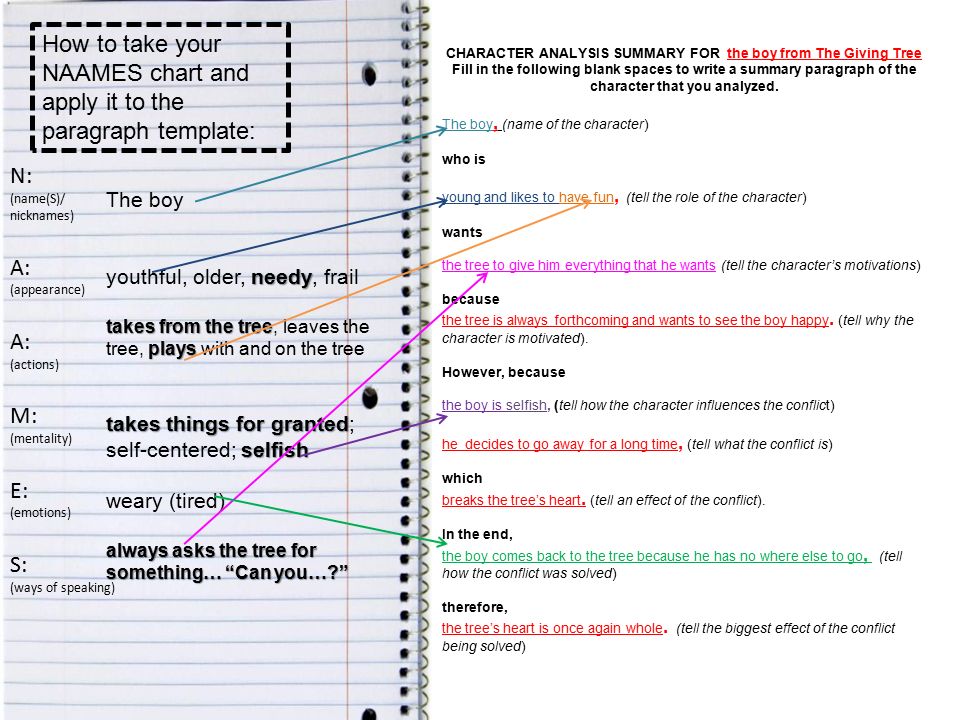 How to take your
NAAMES chart and
apply it to the
paragraph template:
N:
(name(S)/
nicknames)
The boy
A:
(appearance)
youthful, older, needy, frail
A:
(actions)
takes from the tree, leaves the
tree, plays with and on the tree
M:
(mentality)
takes things for granted;
self-centered; selfish
E:
(emotions)
weary (tired)
S:
(ways of speaking)
always asks the tree for
something… “Can you…?”
CHARACTER ANALYSIS SUMMARY FOR the boy from The Giving Tree
Fill in the following blank spaces to write a summary paragraph of the
character that you analyzed.
The boy, (name of the character)
who is
young and likes to have fun, (tell the role of the character)
wants
the tree to give him everything that he wants (tell the character’s motivations)
because
the tree is always forthcoming and wants to see the boy happy. (tell why the
character is motivated).
However, because
the boy is selfish, (tell how the character influences the conflict)
he decides to go away for a long time, (tell what the conflict is)
which
breaks the tree’s heart. (tell an effect of the conflict).
In the end,
the boy comes back to the tree because he has no where else to go, (tell
how the conflict was solved)
therefore,
the tree’s heart is once again whole. (tell the biggest effect of the conflict
being solved)